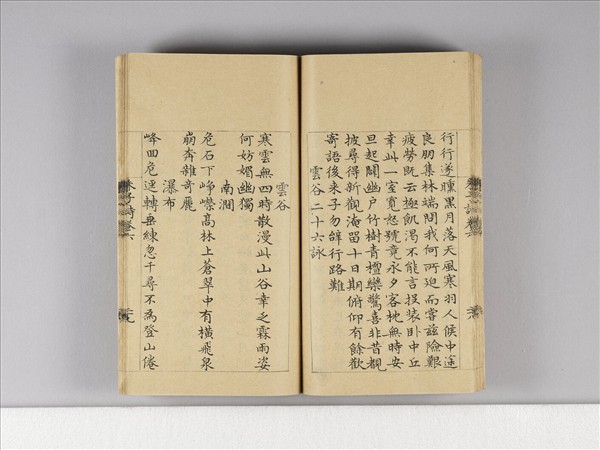 行行遂曛黑月落天風寒羽人候中途
良朋集林端問我何所迫而當兹險艱
疲勞既云極飢渴不能言投裝卧中丘
幸此一室寛怒號竟永夕客枕無時安
旦起闢幽户竹樹青檀欒驚喜非昔覩
披尋得新觀淹留十日期俯仰有餘歡
寄語後来子勿辤行路難
雲谷二十六詠
雲谷
寒雲無四時散漫此山谷幸乏霖雨姿
何妨媚幽獨
南澗
危石下崢嶸高林上蒼翠中有橫飛泉
崩奔雜奇麗
瀑布
峰回危逕轉垂練忽千尋不為登山倦